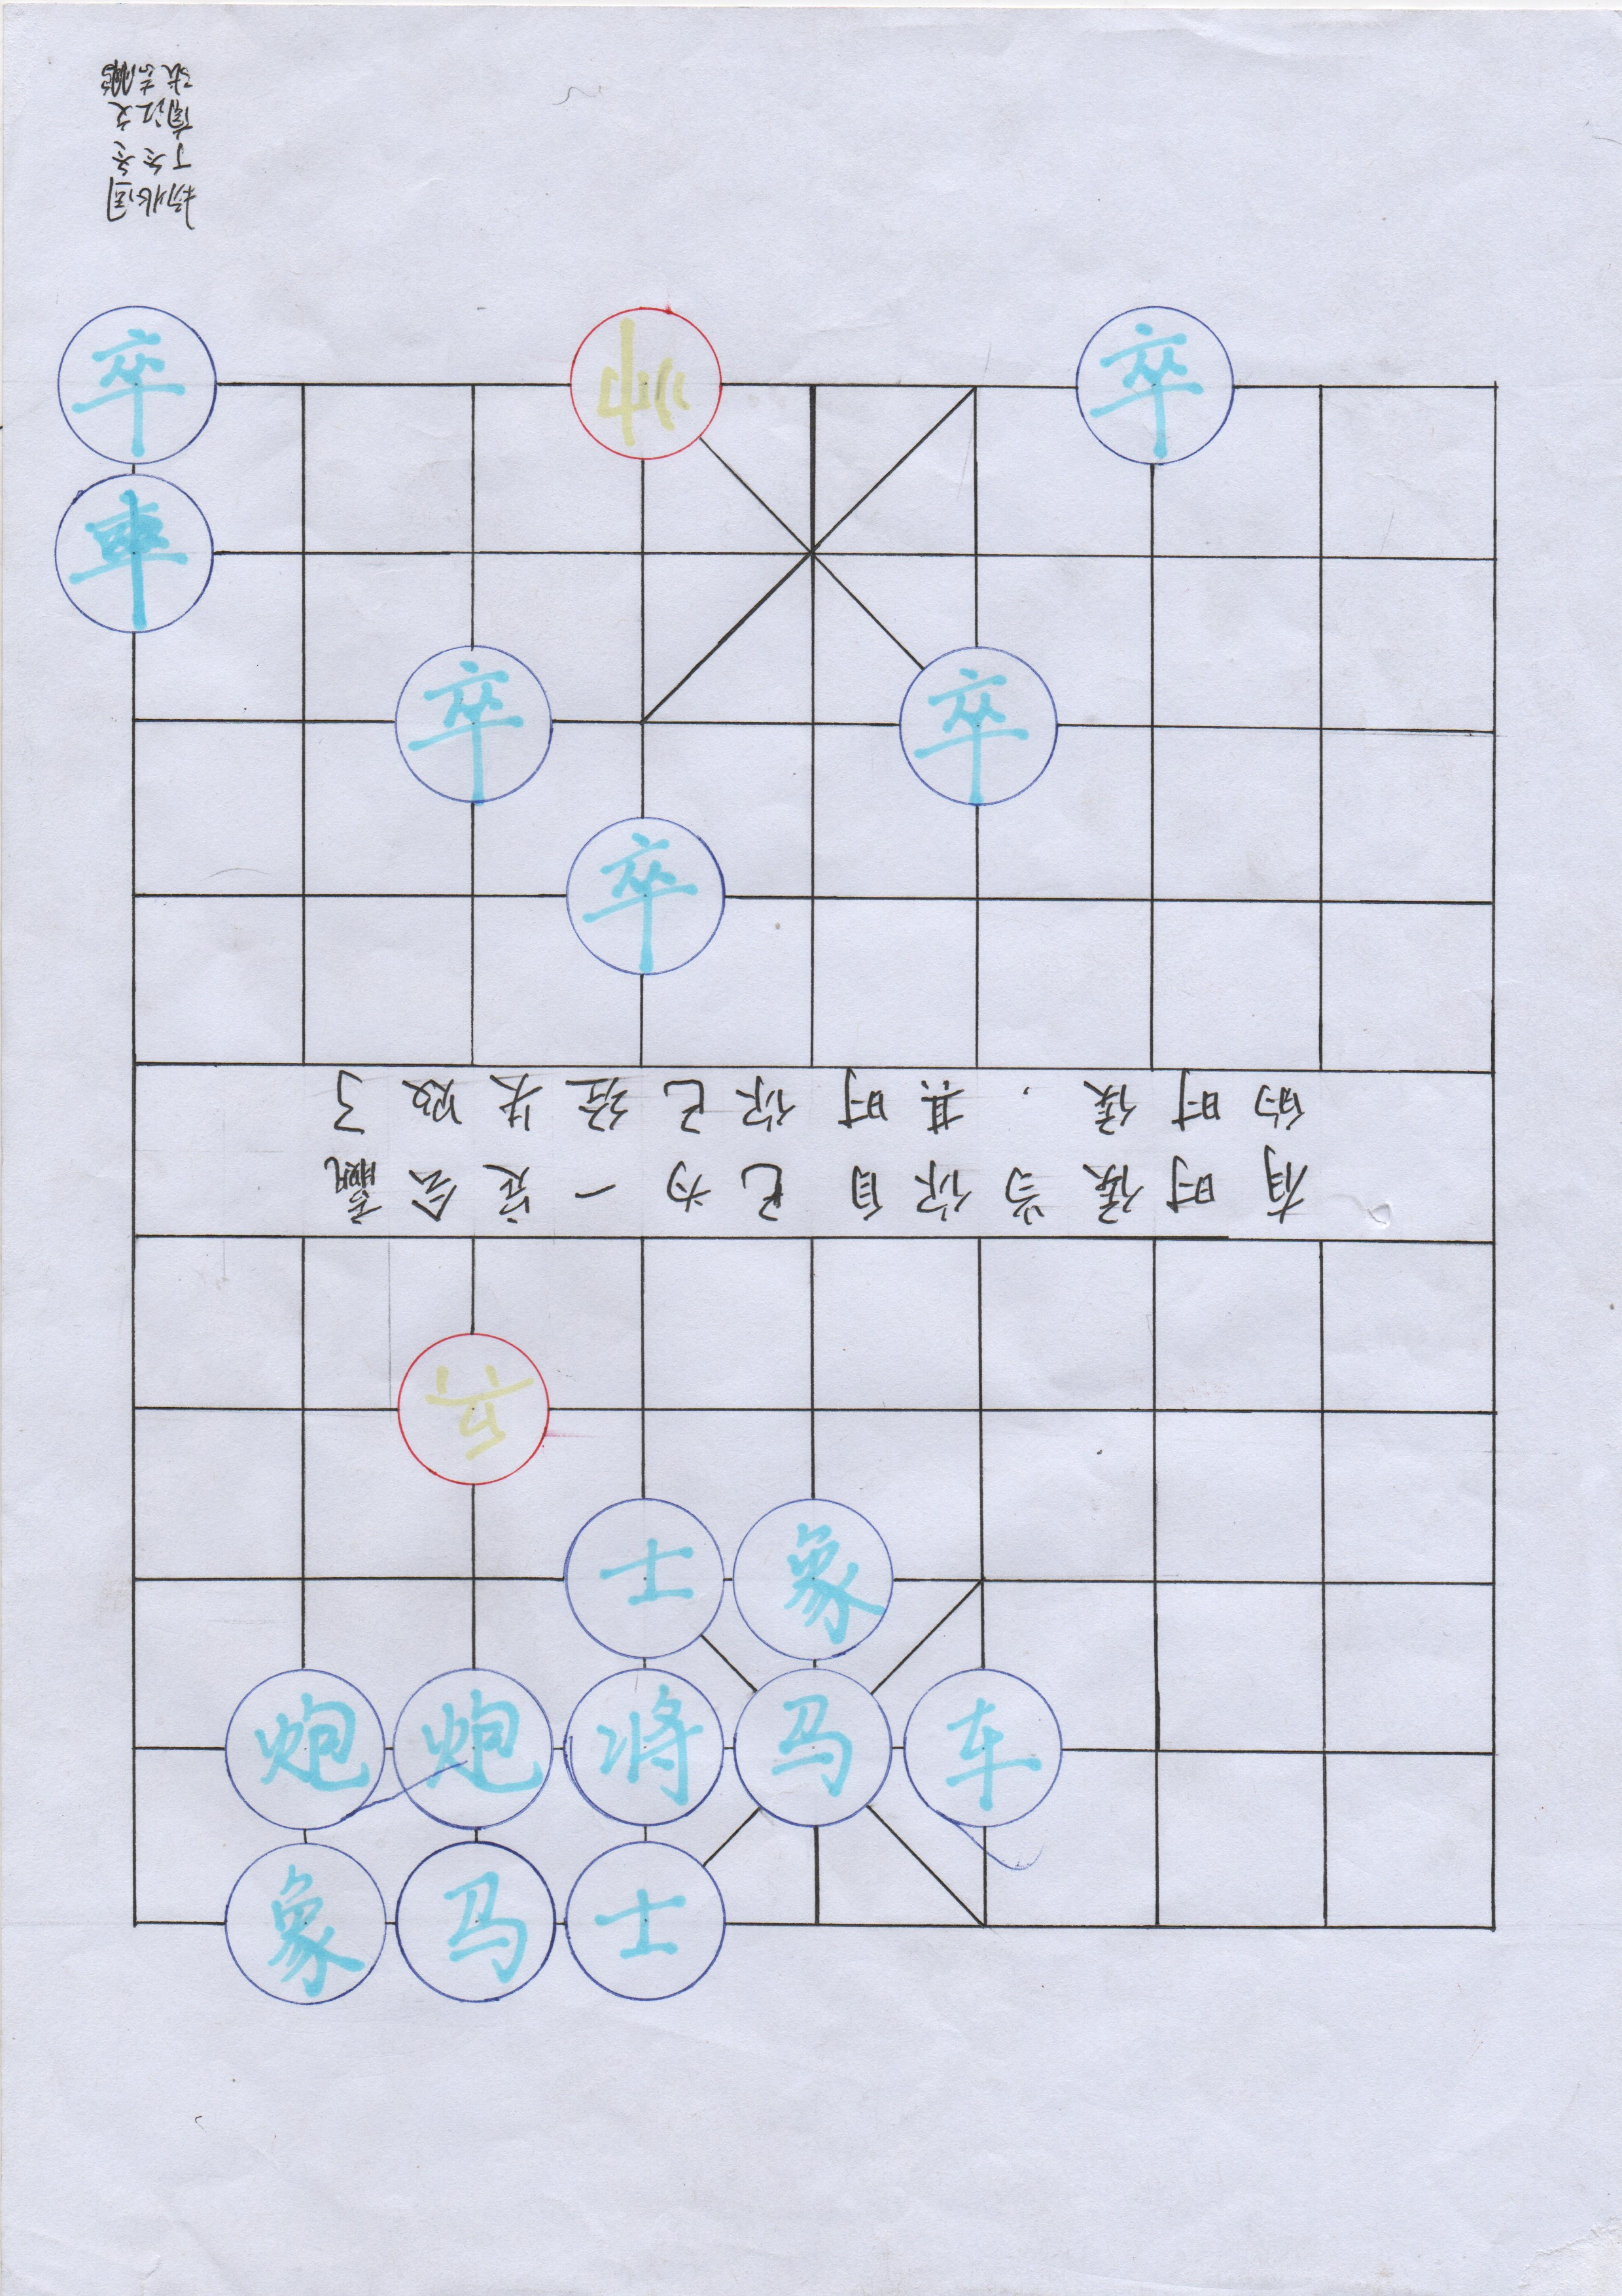 卒 帅 卒
車
卒 卒
卒
有时候当你自己为一定会赢
的时候．其时你已经失败了
兵
士 象
炮 炮 将 马 车
象 马 士